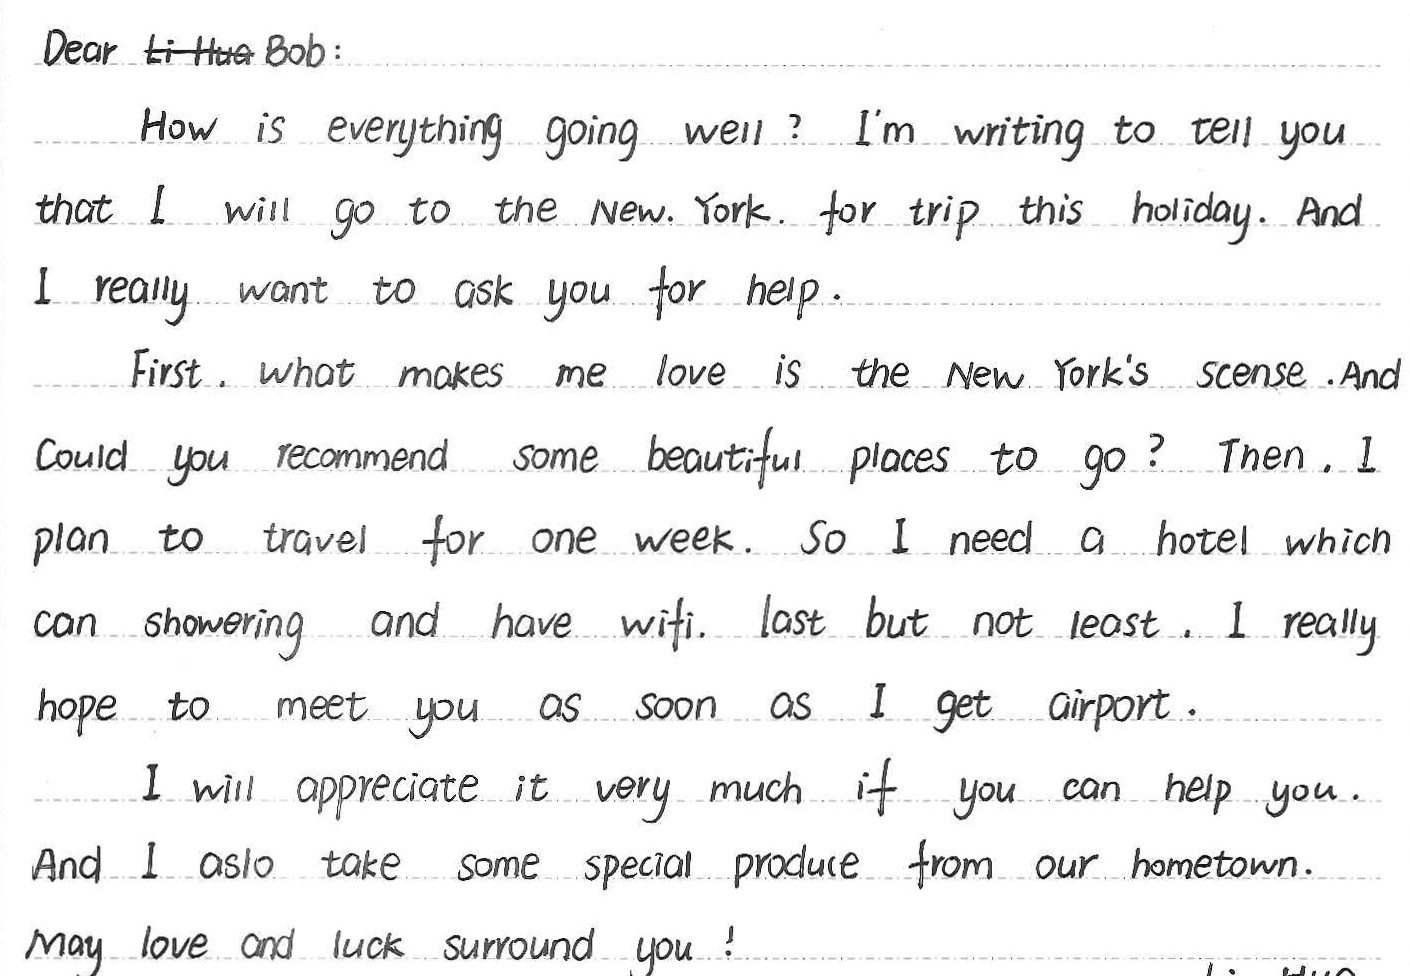 Dear Li Hua Bob:
How is everything going well? I'm writing to tell you
that I will go to the New. York. for trip this holiday. And
I really want to ask you for help.
First. what makes me love is the New York's scense. And
Could you recommend some beautiful places to go? Then. I
plan to travel for one week. So I need a hotel which
can showering and have wifi. last but not least. I really
hope to meet you as soon as I get airport.
I will appreciate it very much if you can help you.
And I aslo take some special produce from our hometown.
May love and luck surround you!
Li Hua